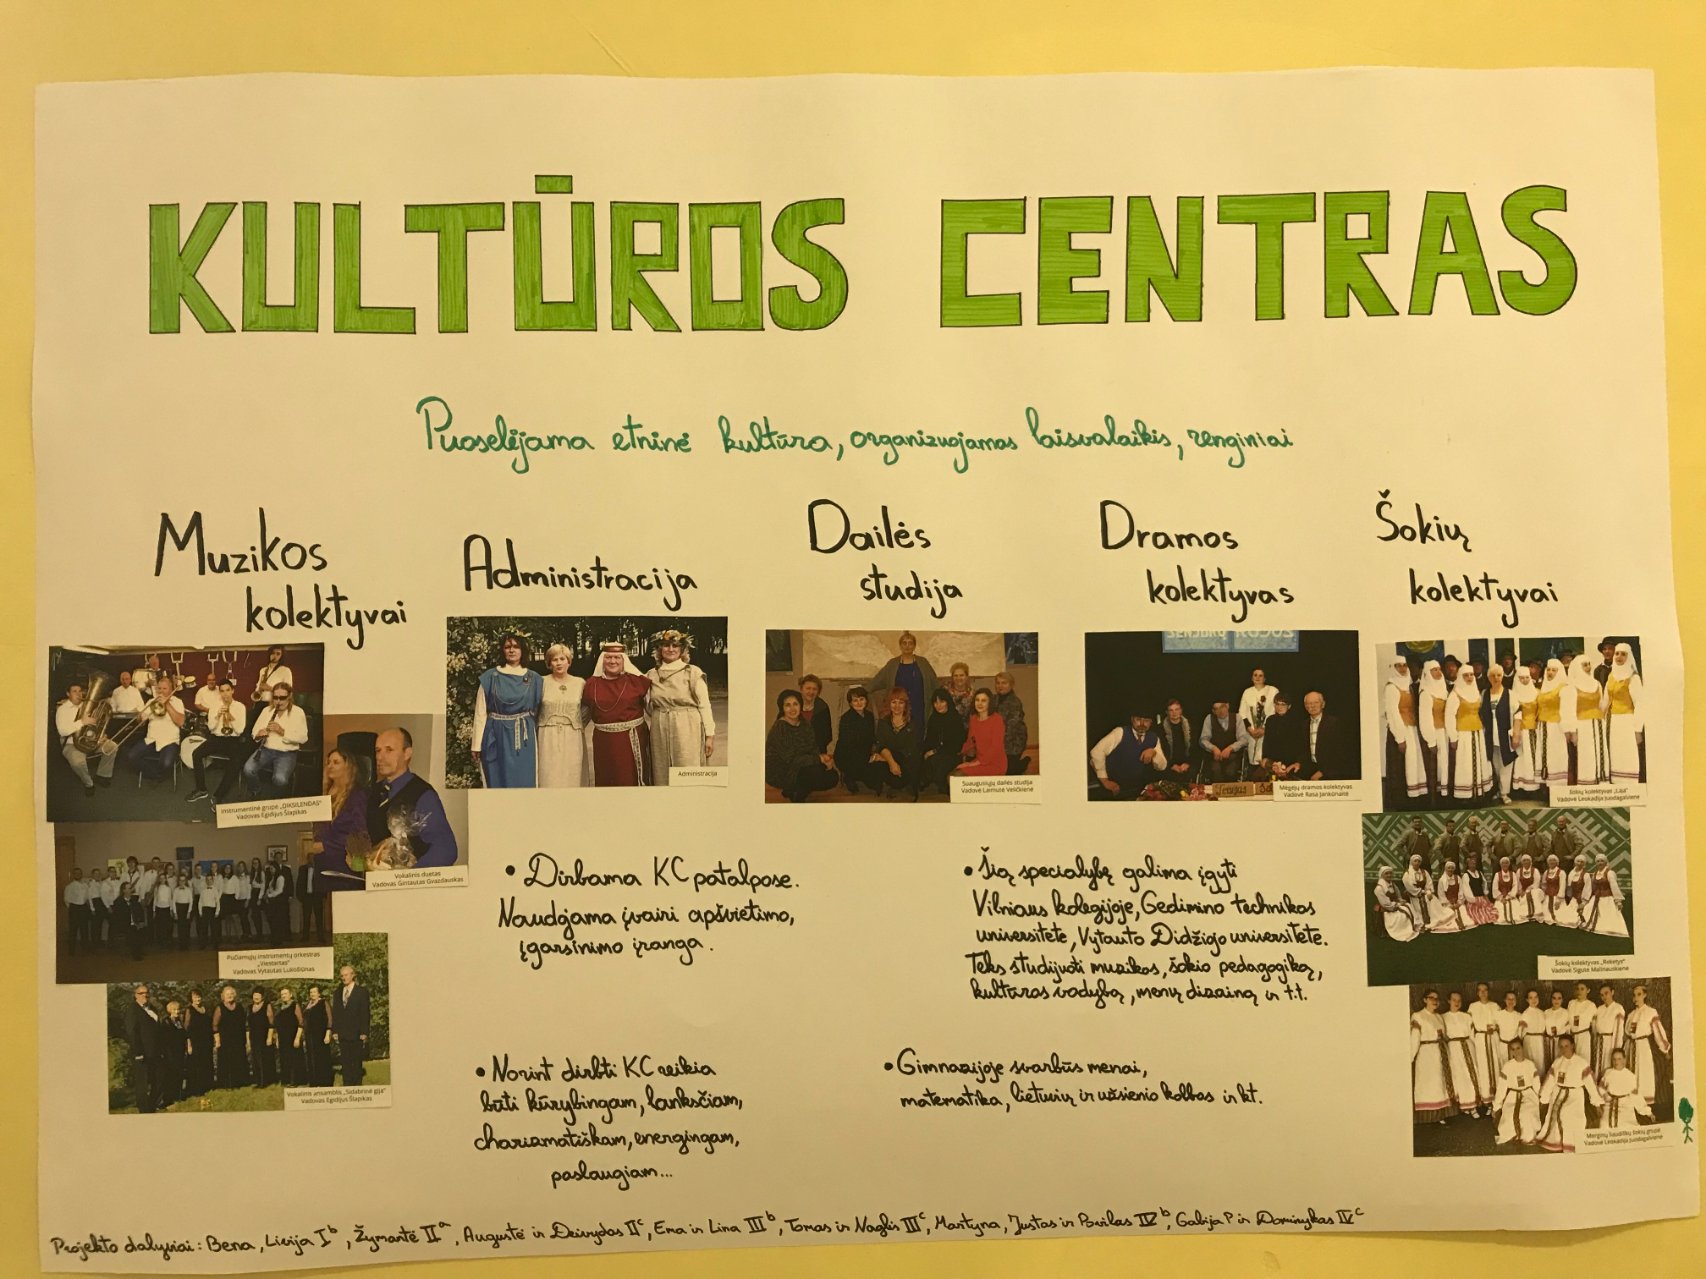 KULTŪROS CENTRAS
Puoselėjama etninė kultūra, organizuojamas laisvalaikis, renginiai
Muzikos
kolektyvai
Administracija
Dailės
studija
Dramos
kolektyvas
Šokių
kolektyvai
Instrumentinė grupė „DIKSILENDAS"
Vadovas Egidijus Šlapikas
Vokalinis duetas
Vadovas Gintautas Gvazdauskas
Pučiamųjų instrumentų orkestras
„Viestartas"
Vadovas Vytautas Lukošiūnas
Vokalinis ansamblis „Sidabrinė gija"
Vadovas Egidijus Šlapikas
Administracija
Suaugusiųjų dailės studija
Vadovė Laimutė Veličkienė
SENJORŲ
Mėgėjų dramos kolektyvas
Vadovė Rasa Jankūnaitė
Šokių kolektyvas
Vadovė Leokadija Juodagalvienė
Šokių kolektyvas „Reketys"
Vadovė Sigutė Malinauskienė
Merginų liaudiškų šokių grupė
Vadovė Leokadija Juodagalvienė
• Dirbama KC patalpose.
Naudojama įvairi apšvietimo,
įgarsinimo įranga.
• Norint dirbti KC reikia
būti kūrybingam, lanksčiam,
charizmatiškam, energingam,
paslaugiam...
• Šią specialybę galima įgyti
Vilniaus kolegijoje, Gedimino technikos
universitete, Vytauto Didžiojo universitete.
Teks studijuoti muzikos, šokio pedagogiką,
kultūros vadybą, menų dizainą ir t.t.
• Gimnazijoje svarbūs menai,
matematika, lietuvių ir užsienio kalbos ir kt.
Projekto dalyviai: Bena, Livija I b, Žymantė II a, Augustė ir Deividas II c, Ema ir Lina III b, Tomas ir Naglis III c, Martyna, Justas ir Povilas IV b, Gabija P ir Dominykas IV c